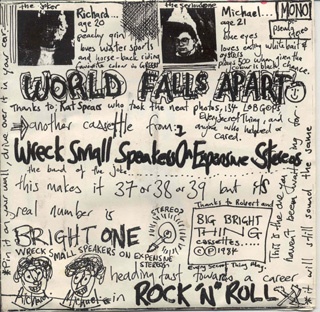 the joker
the serious one
Richard...
age 20
peachy grin
loves water sports
and horse-back riding
favourite colour is GREEN
Michael...
age 21
blue eyes
loves eating
oysters
MONO!
WORLD FALLS APART
Thanks to; Kat Spears who took the neat photos,
Every Secret Thing, and
anyone who helped or
cared.
another cassette from
Wreck Small Speakers On Expensive Stereos
the band of the
this makes it 37 or 38 or 39 but it's
real number is
BRIGHT ONE
WRECK SMALL SPEAKERS ON EXPENSIVE
STEREOS
STEREOS
Thanks to Robert and
BIG BRIGHT
THING
cassettes...
©℗1984
Every Secret Thing
heading fast towards a career
in ROCK "N" ROLL
Richard
Michael
Pin it on your wall, drive over it in your car..
it will still sound the same